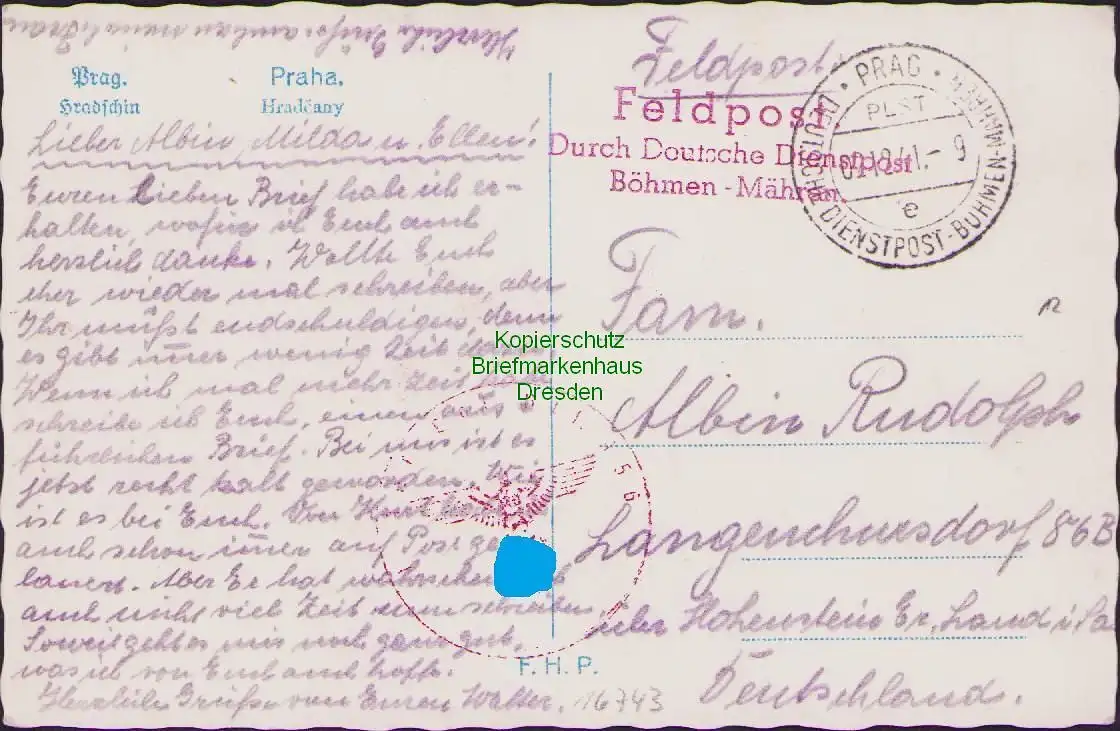 Herzliche Grüße auch an meine l. Frau
Prag.
Hradschin
Praha.
Hradčany
Lieber Albin, Milda u. Ellen!
Euren Lieben Brief habe ich er-
halten, wofür ich Euch auch
herzlich danke. Wollte Euch
eher wieder mal schreiben, aber
Ihr müßt endschuldigen, denn
es gibt imer wenig Zeit
Wenn ich mal mehr Zeit habe
schreibe ich Euch, einen aus
führlichen Brief. Bei uns ist es
jetzt recht kalt geworden. Wie
ist es bei Euch. Von Kurt
auch schon imer auf Post ge
lauert. Aber Er hat
auch nicht viel Zeit zum schreiben
Soweit geht es mir noch ganz gut,
was ich von Euch auch hoffe.
Herzliche Grüße von Euren Walter.
16743
F.H.P.
Feldpost
Feldpost
Durch Deutsche Dienstpost
Böhmen - Mähren.
PRAG
PLST
12.41.- 9
e
DEUTSCHE DIENSTPOST-BÖHMEN-MÄHREN
Fam.
Albin Rudolph
Langenchursdorf 86B
über Hohenstein Er, Land i. Sa
Deutschland.
Kopierschutz
Briefmarkenhaus
Dresden